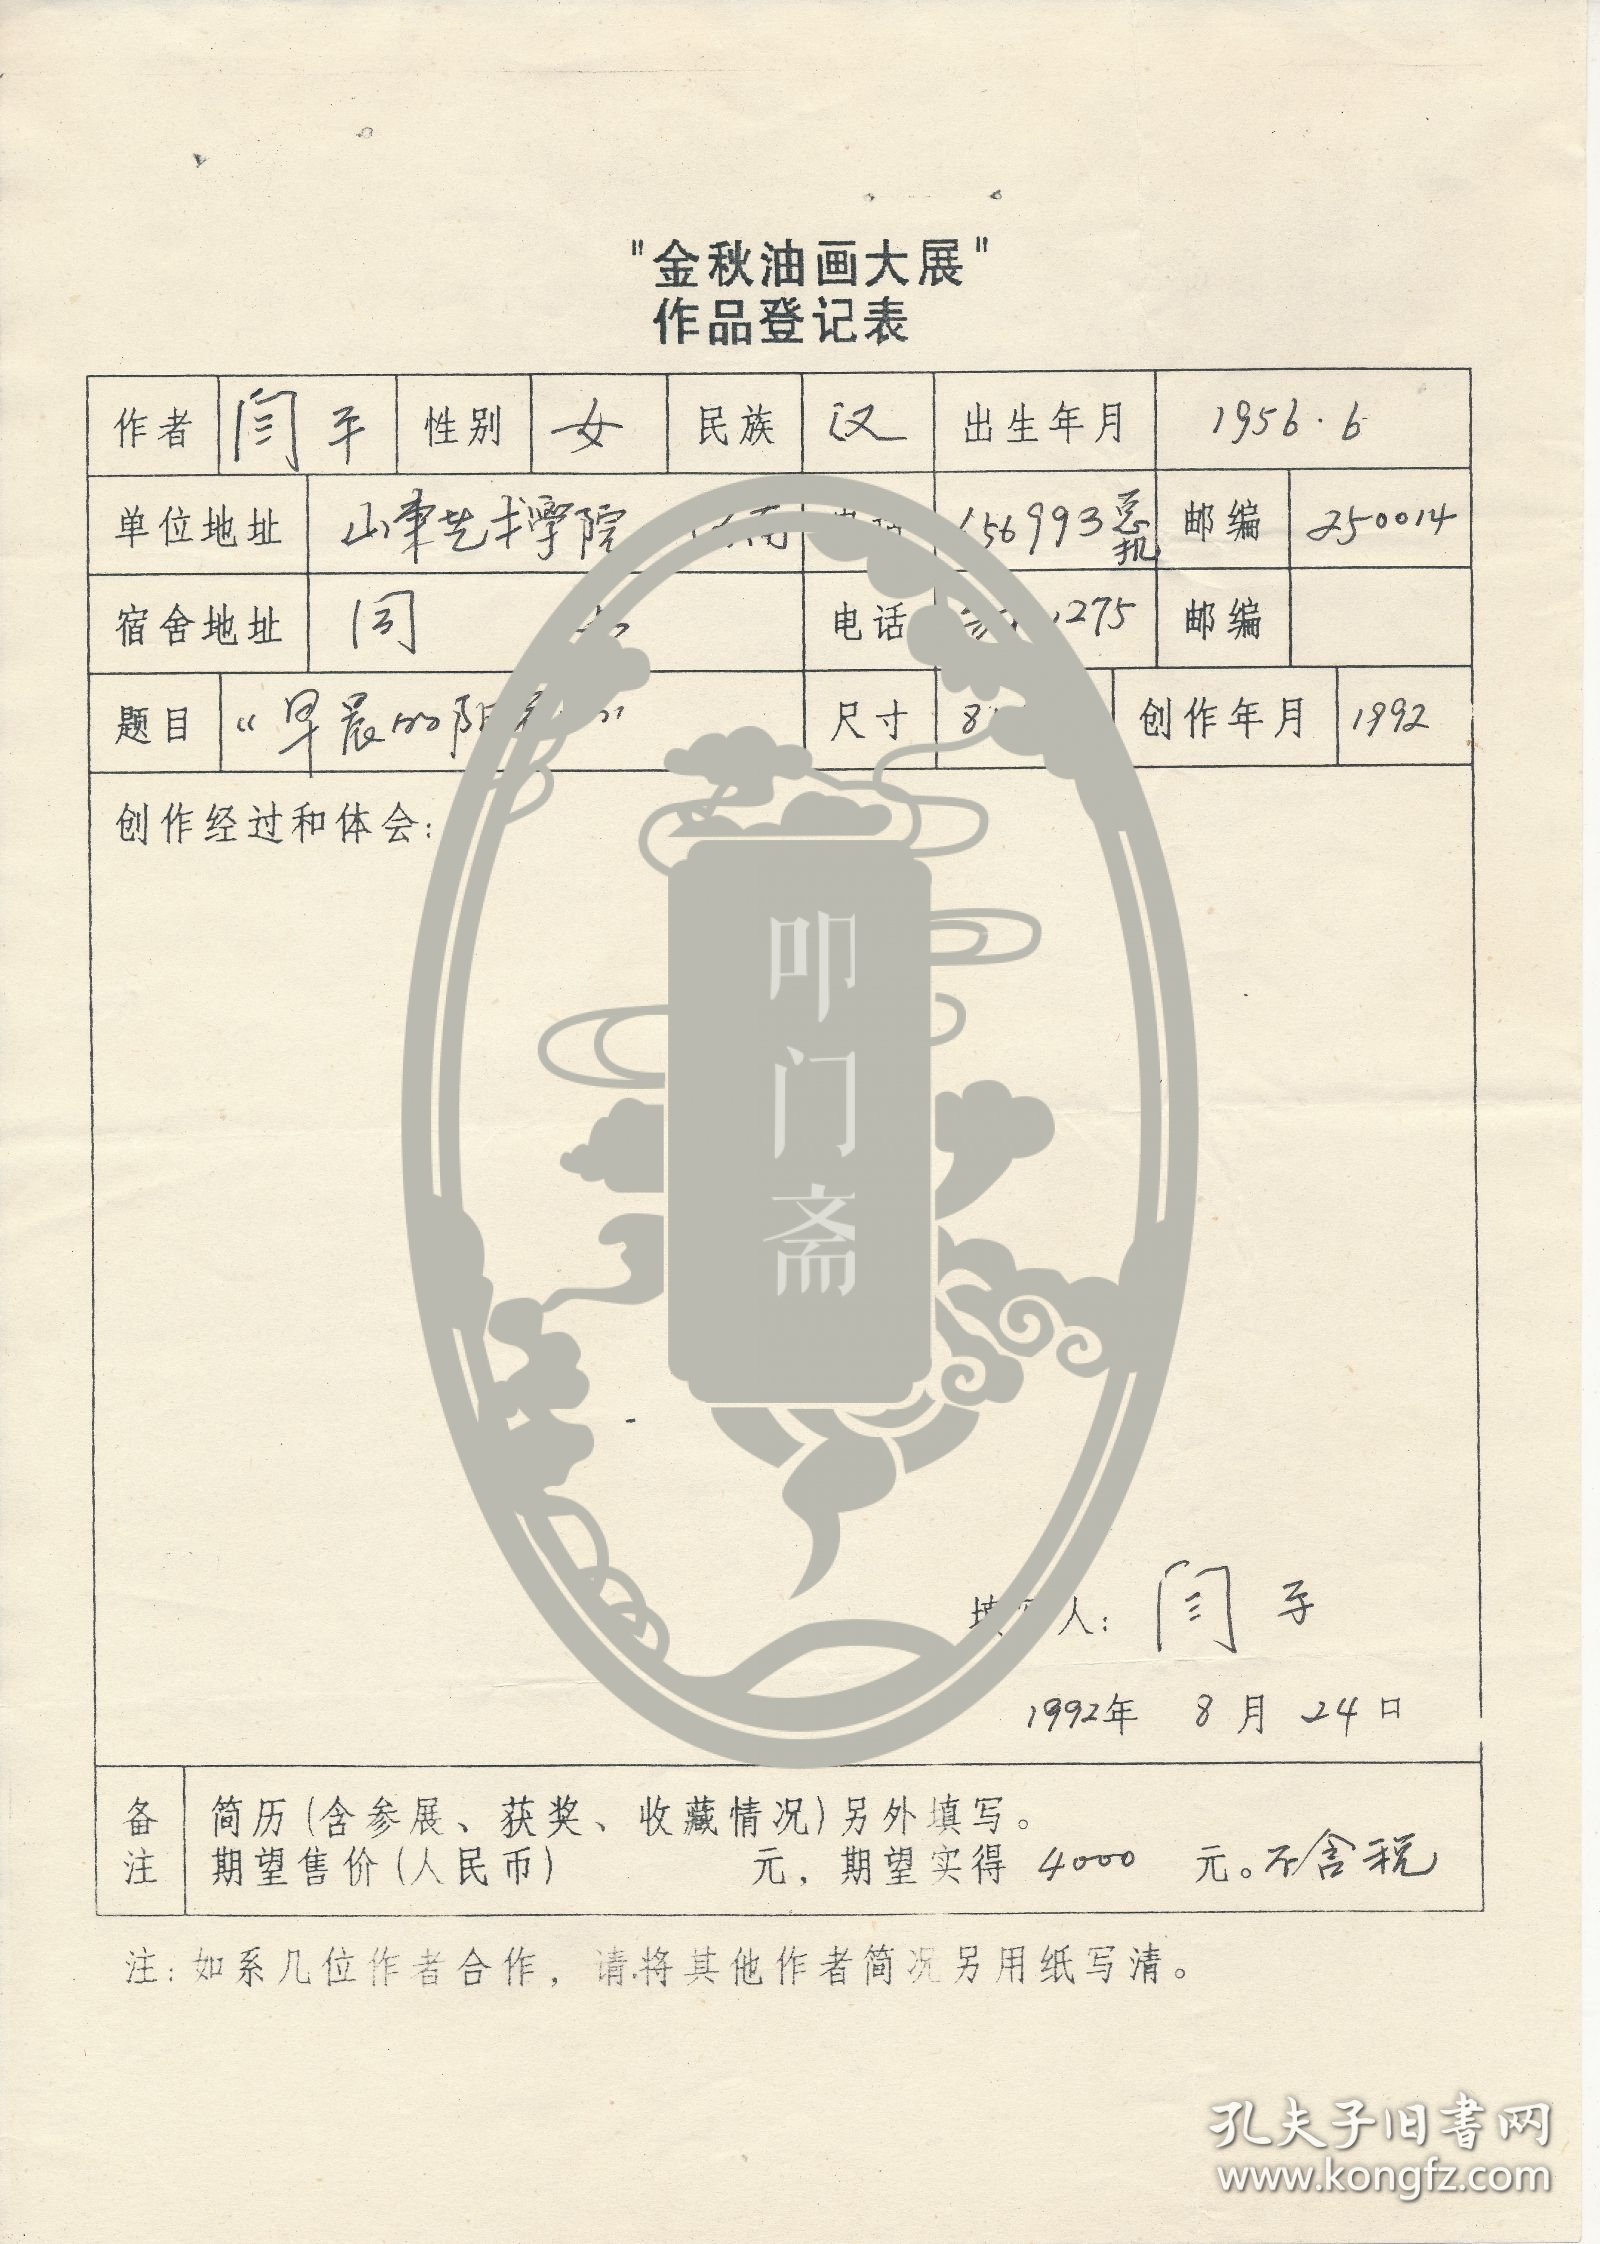 "金秋油画大展"
作品登记表
作者 闫平 性别 女 民族 汉 出生年月 1956.6
单位地址 山东艺术学院 济南 156993总机 邮编 250014
宿舍地址 同 电话 275 邮编
题目 "早晨的阳 " 尺寸 8 创作年月 1992
创作经过和体会:
叩门斋
人: 闫平
1992年 8月 24日
备注
简历(含参展、获奖、收藏情况)另外填写。
期望售价(人民币) 元, 期望实得 4000 元。不含税
注:如系几位作者合作, 请将其他作者简况另用纸写清。
孔夫子旧书网
www.kongfz.com